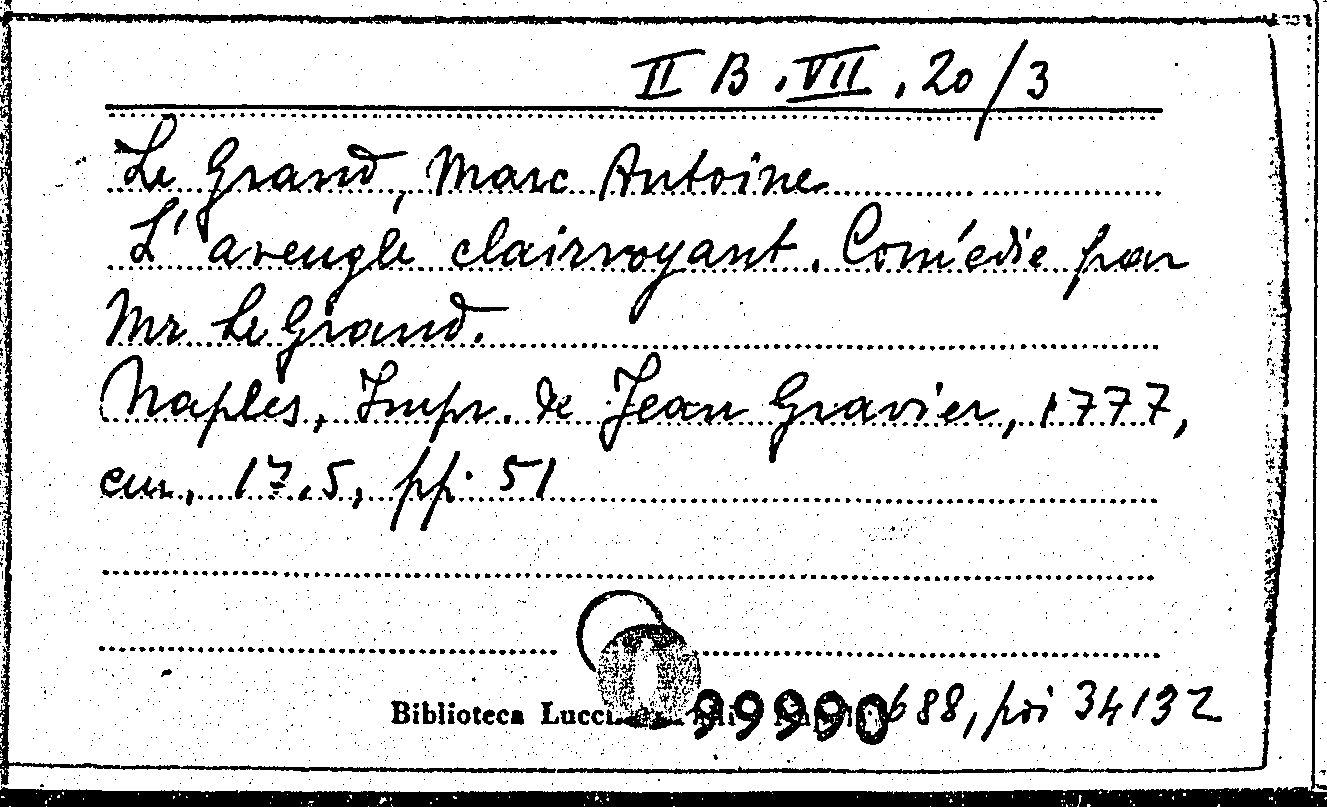 II B. VII. 20/3
Le Grand, Marc Antoine
L'aveugle clairvoyant. Comédie par
Mr Le Grand.
Naples, Impr. de Jean Gravier, 1777,
cm. 17.5, pp. 51
Biblioteca 99990 688, poi 34132